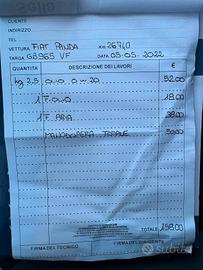 CLIENTE
INDIRIZZO
TEL
VETTURA FIAT PANDA KM 26740
TARGA GB965 VF DATA 05-05-2022
QUANTITÀ DESCRIZIONE DEI LAVORI €
Kg 2.5 OLIO 0-30 52.00
1 F. OLIO 18.00
1 F. ARIA 38.00
MANODOPERA TOTALE 50.00
TOTALE 158.00
FIRMA DEL TECNICO FIRMA DEL DIRIGENTE
Subito